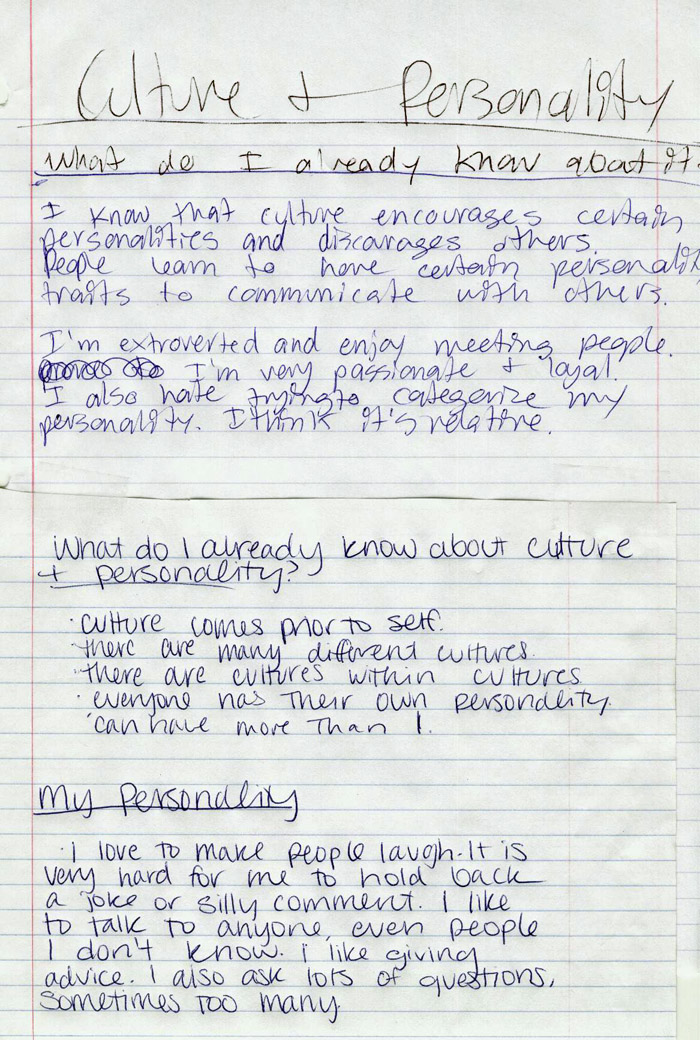 Culture + Personality
What do I already know about it.
I know that culture encourages certain
personalities and discourages others.
People learn to have certain personality
traits to communicate with others.
I'm extroverted and enjoy meeting people.
I'm very passionate + loyal.
I also hate trying to categorize my
personality. I think it's relative.
What do I already know about culture
+ personality?
· culture comes prior to self.
· there are many different cultures.
· there are cultures within cultures
· everyone has their own personality.
· can have more than 1.
My Personality
· I love to make people laugh. It is
very hard for me to hold back
a joke or silly comment. I like
to talk to anyone, even people
I don't know. I like giving
advice. I also ask lots of questions,
sometimes too many.